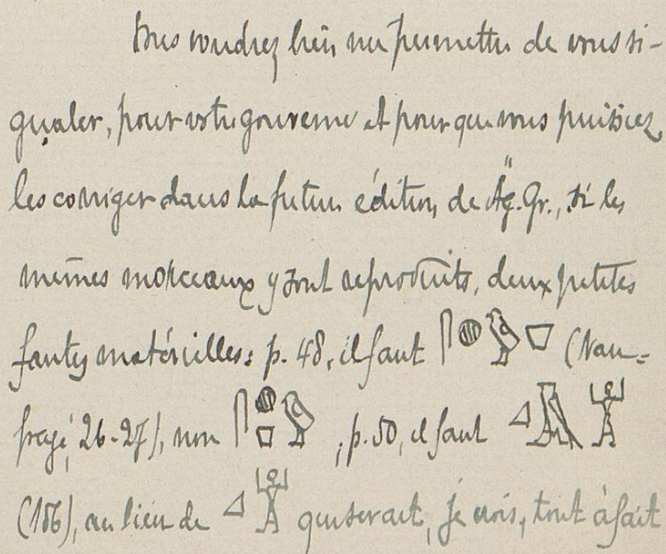 Vous voudrez bien me permettre de vous si-
gnaler, pour votre gouverne et pour que vous puissiez
les corriger dans la future édition de Äg. Gr., si les
mêmes morceaux y sont reproduits, deux petites
fautes matérielles : p. 48, il faut 𓋴𓐍𓅱𓎡 (Nau-
fragé, 26-27), non 𓋴𓐍𓎡𓅱, p. 50, il faut
(186), au lieu de qui serait, je crois, tout à fait